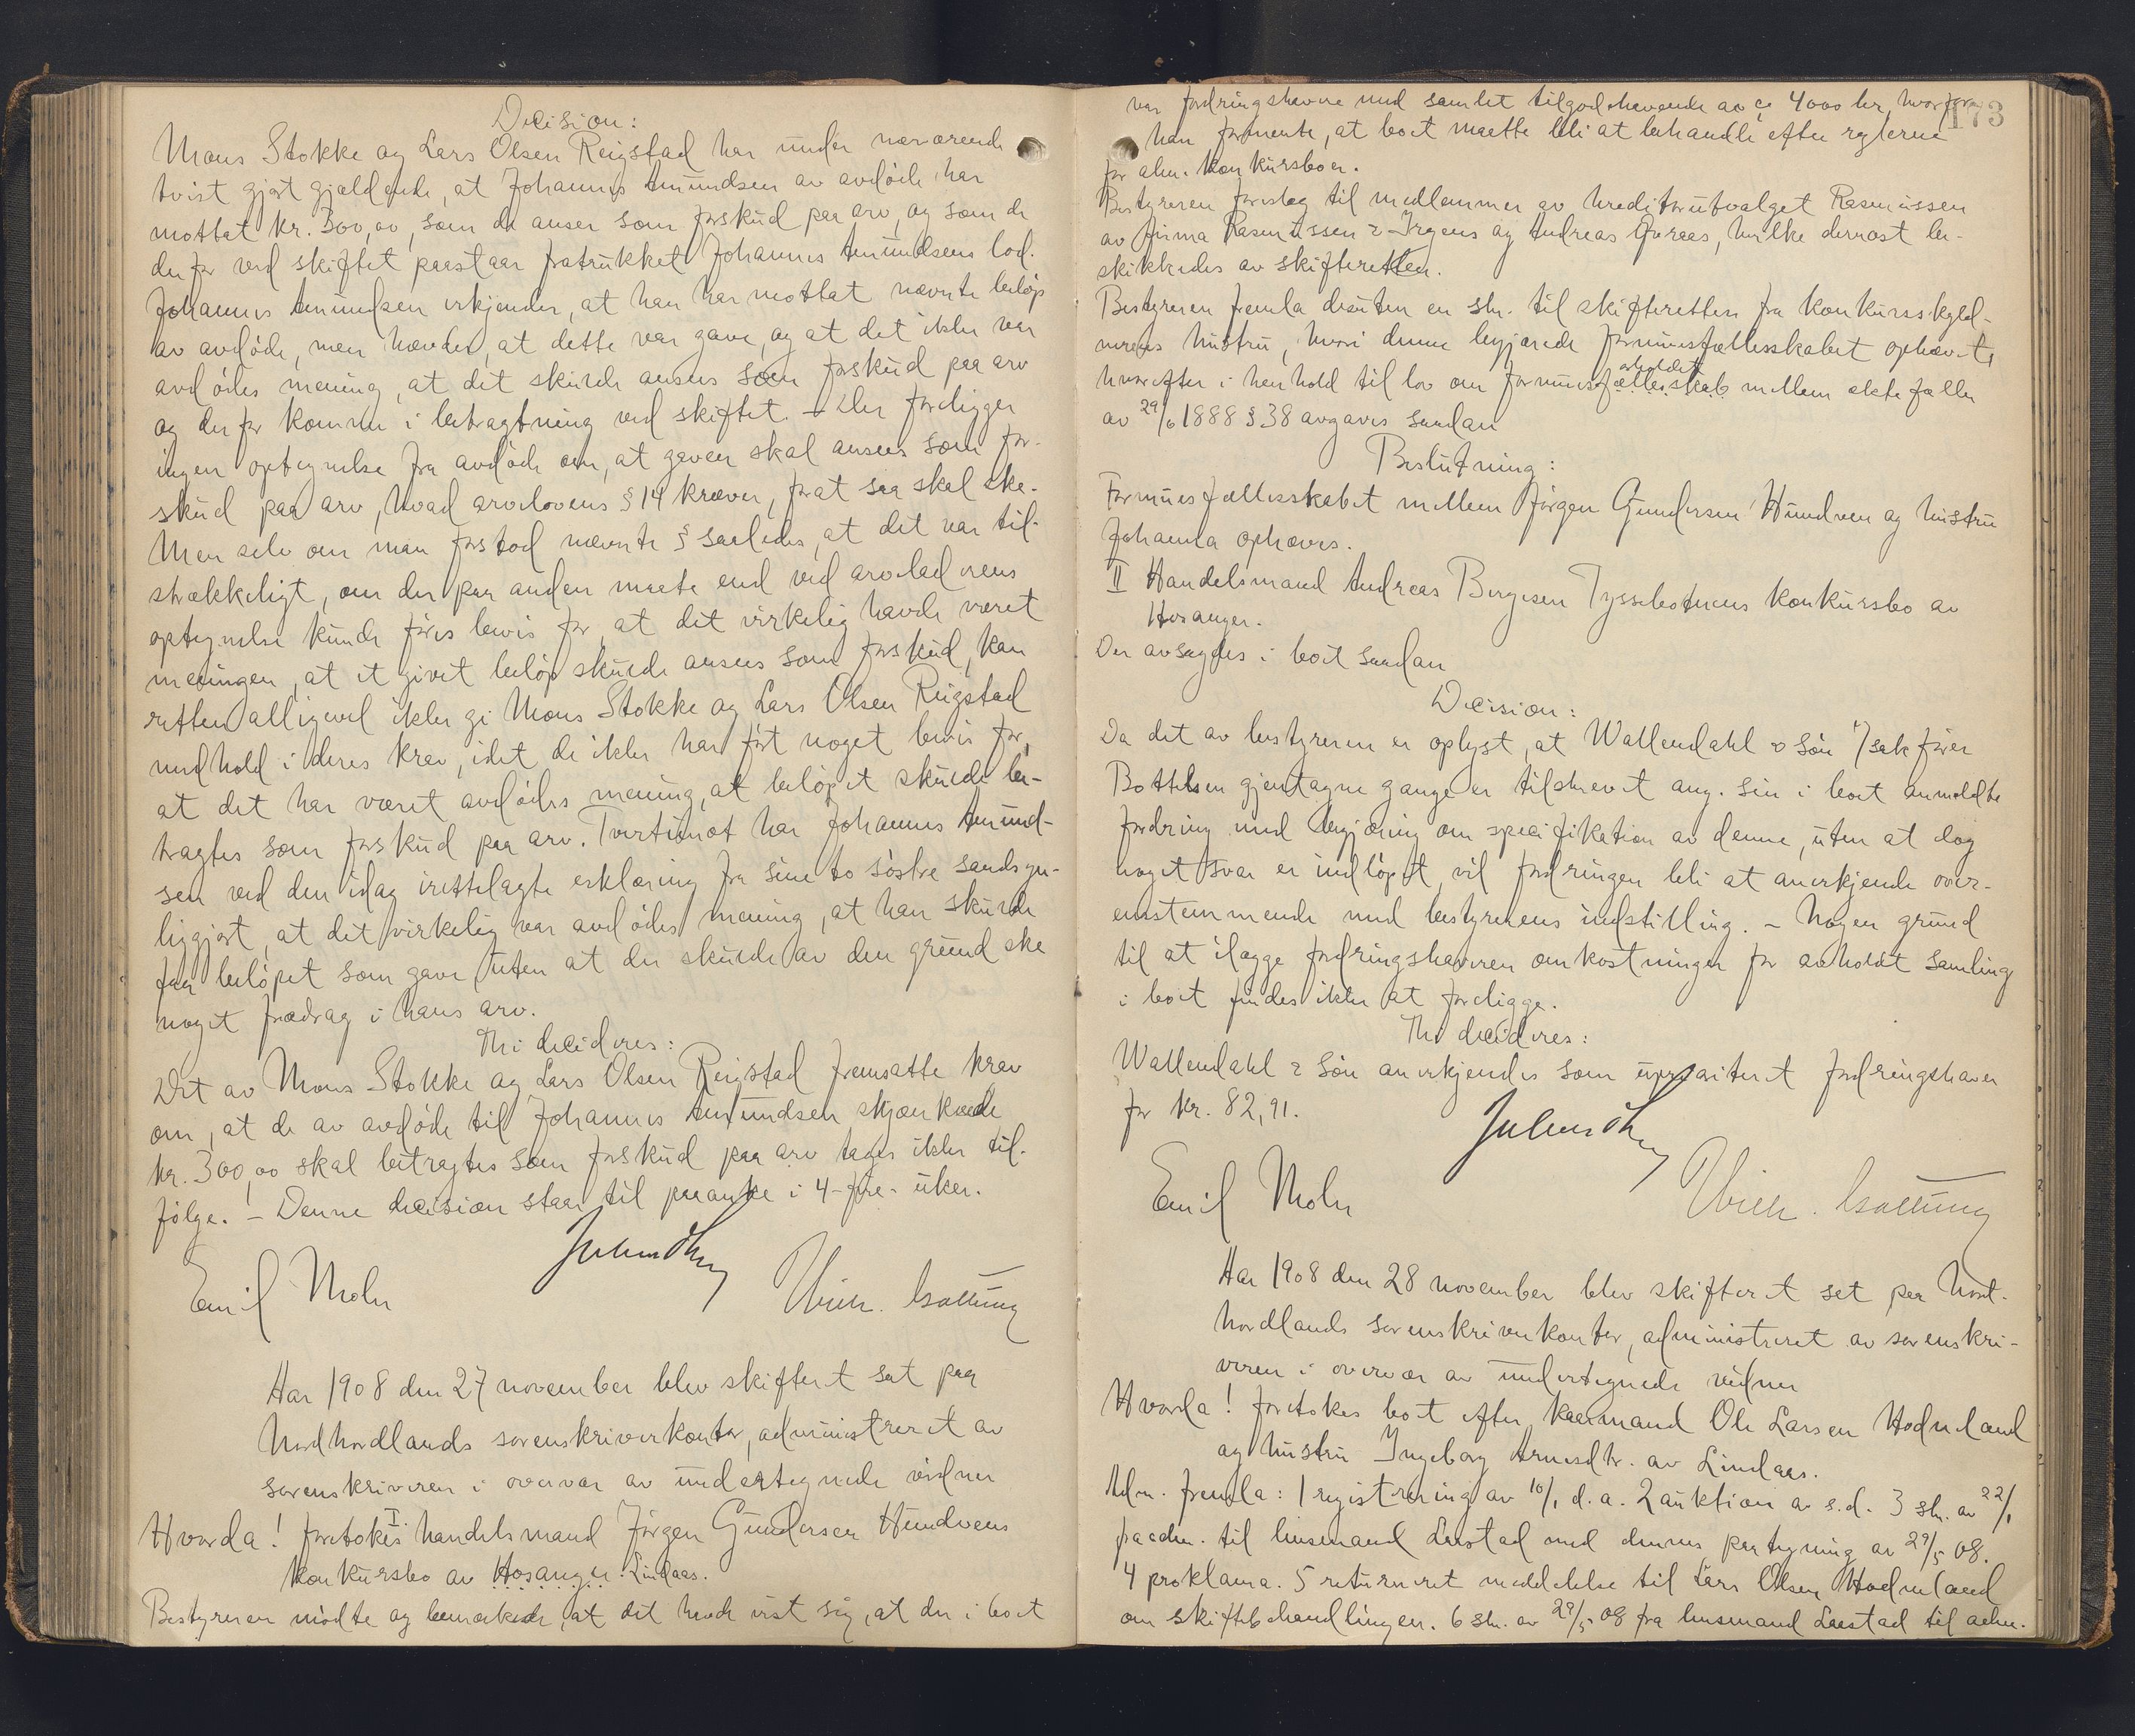 Decision:
Mons Stokke og Lars Olsen Reigstad har under nærværende
tvist gjort gjældende, at Johannes Amundsen av avdøde har
mottat kr. 300,00, som de anser som forskud paa arv, og som de
derfor ved skiftet paastaar fratrukket Johannes Amundsens lod.
Johannes Amundsen erkjender, at han har mottat nævnte beløp
av avdøde, men hævder, at dette var gave, og at det ikke var
avdødes mening, at det skulde ansees som forskud paa arv
og derfor komme i betragtning ved skiftet. – Der foreligger
ingen optegnelse fra avdøde om, at gaven skal ansees som for-
skud paa arv, hvad arvelovens § 14 kræver, for at saa skal ske.
Men selv om man forstod nævnte § saaledes, at det var til-
strækkeligt, om der paa anden maate end ved arveladerens
optegnelse kunde føres bevis for, at det virkelig havde været
meningen, at et givet beløp skulde ansees som forskud, kan
retten alligevel ikke gi Mons Stokke og Lars Olsen Reigstad
medhold i deres krav, idet de ikke har ført noget bevis for,
at det har været avdødes mening, at beløpet skulde be-
tragtes som forskud paa arv. Tvertimot har Johannes Amund-
sen ved den idag irettelagte erklæring fra sine to søstre sandsyn-
liggjort, at det virkelig var avdødes mening, at han skulde
faa beløpet som gave, uten at der skulde av den grund ske
noget fradrag i hans arv.
Thi decideres:
Det av Mons Stokke og Lars Olsen Reigstad fremsatte krav
om, at de av avdøde til Johannes Amundsen skjænkede
kr. 300,00 skal betragtes som forskud paa arv tages ikke til-
følge. – Denne decision staar til paaanke i 4-fire-uker.
Emil Mohr
Aar 1908 den 27 november blev skifteret sat paa
Nordhordlands sorenskriverkontor, administreret av
sorenskriveren i overvær av undertegnede vidner
Hvorda! foretokes I. handelsmand Jørgen Gundersen Hundvens
konkursbo av Hosanger Lindaas.
Bestyreren mødte og bemerkede, at det havde vist sig, at der i boet
173
var fordringshavere med samlet tilgodehavende av ca 4000 kr, hvorfor
han formente, at boet maatte bli at behandle efter reglerne
for alm. konkursboer.
Bestyreren foreslog til medlemmer av kreditorutvalget Rasmussen
av firma Rasmussen & Irgens og Andreas Gjeraas, hvilke dernæst be-
skikkedes av skifteretten.
Bestyreren fremla desuten en skr. til skifteretten fra konkursskyld-
nerens hustru, hvori denne begjærede formuesfællesskabet ophævet,
hvorefter i henhold til lov om formuesforholdet fællesskab mellem ektefæller
av 29/6 1888 § 38 avgaves saadan
Beslutning:
Formuesfællesskabet mellem Jørgen Gundersen Hundven og hustru
Johanna ophæves.
II Handelsmand Andreas Birgesen Tyssebotnens konkursbo av
Hosanger.
Der avsagdes i boet saadan
Decision:
Da det av bestyreren er oplyst, at Wallendahl & Søn v/ sakfører
Bottelsen gjentagne gange er tilskrevet ang. sin i boet anmeldte
fordring med begjæring om specifikation av denne, uten at dog
noget svar er indløpet, vil fordringen bli at anerkjende over-
ensstemmende med bestyrerens indstilling. – Nogen grund
til at ilægge fordringshaveren omkostninger for avholdt samling
i boet findes ikke at foreligge.
Thi decideres:
Wallendahl & Søn anerkjendes som uprioriteret fordringshaver
for kr. 82,91.
Emil Mohr
Aar 1908 den 28 november blev skifteret set paa Nord-
hordlands sorenskriverkontor, administreret av sorenskri-
veren i overvær av undertegnede vidner
Hvorda! foretokes boet efter kaarmand Ole Larsen Hodneland
og hustru Ingeborg Arnesdtr. av Lindaas.
Adm. fremla: 1 registrering av 10/1 d. a. 2 auktion av s. d. 3 skr. av 22/1
fra adm. til lensmand Lerstad med dennes paategning av 29/5 08.
4 proklama. 5 returneret meddelelse til Lars Olsen Hodneland
om skiftebehandlingen. 6 skr. av 29/5 08 fra lensmand Lerstad til adm.